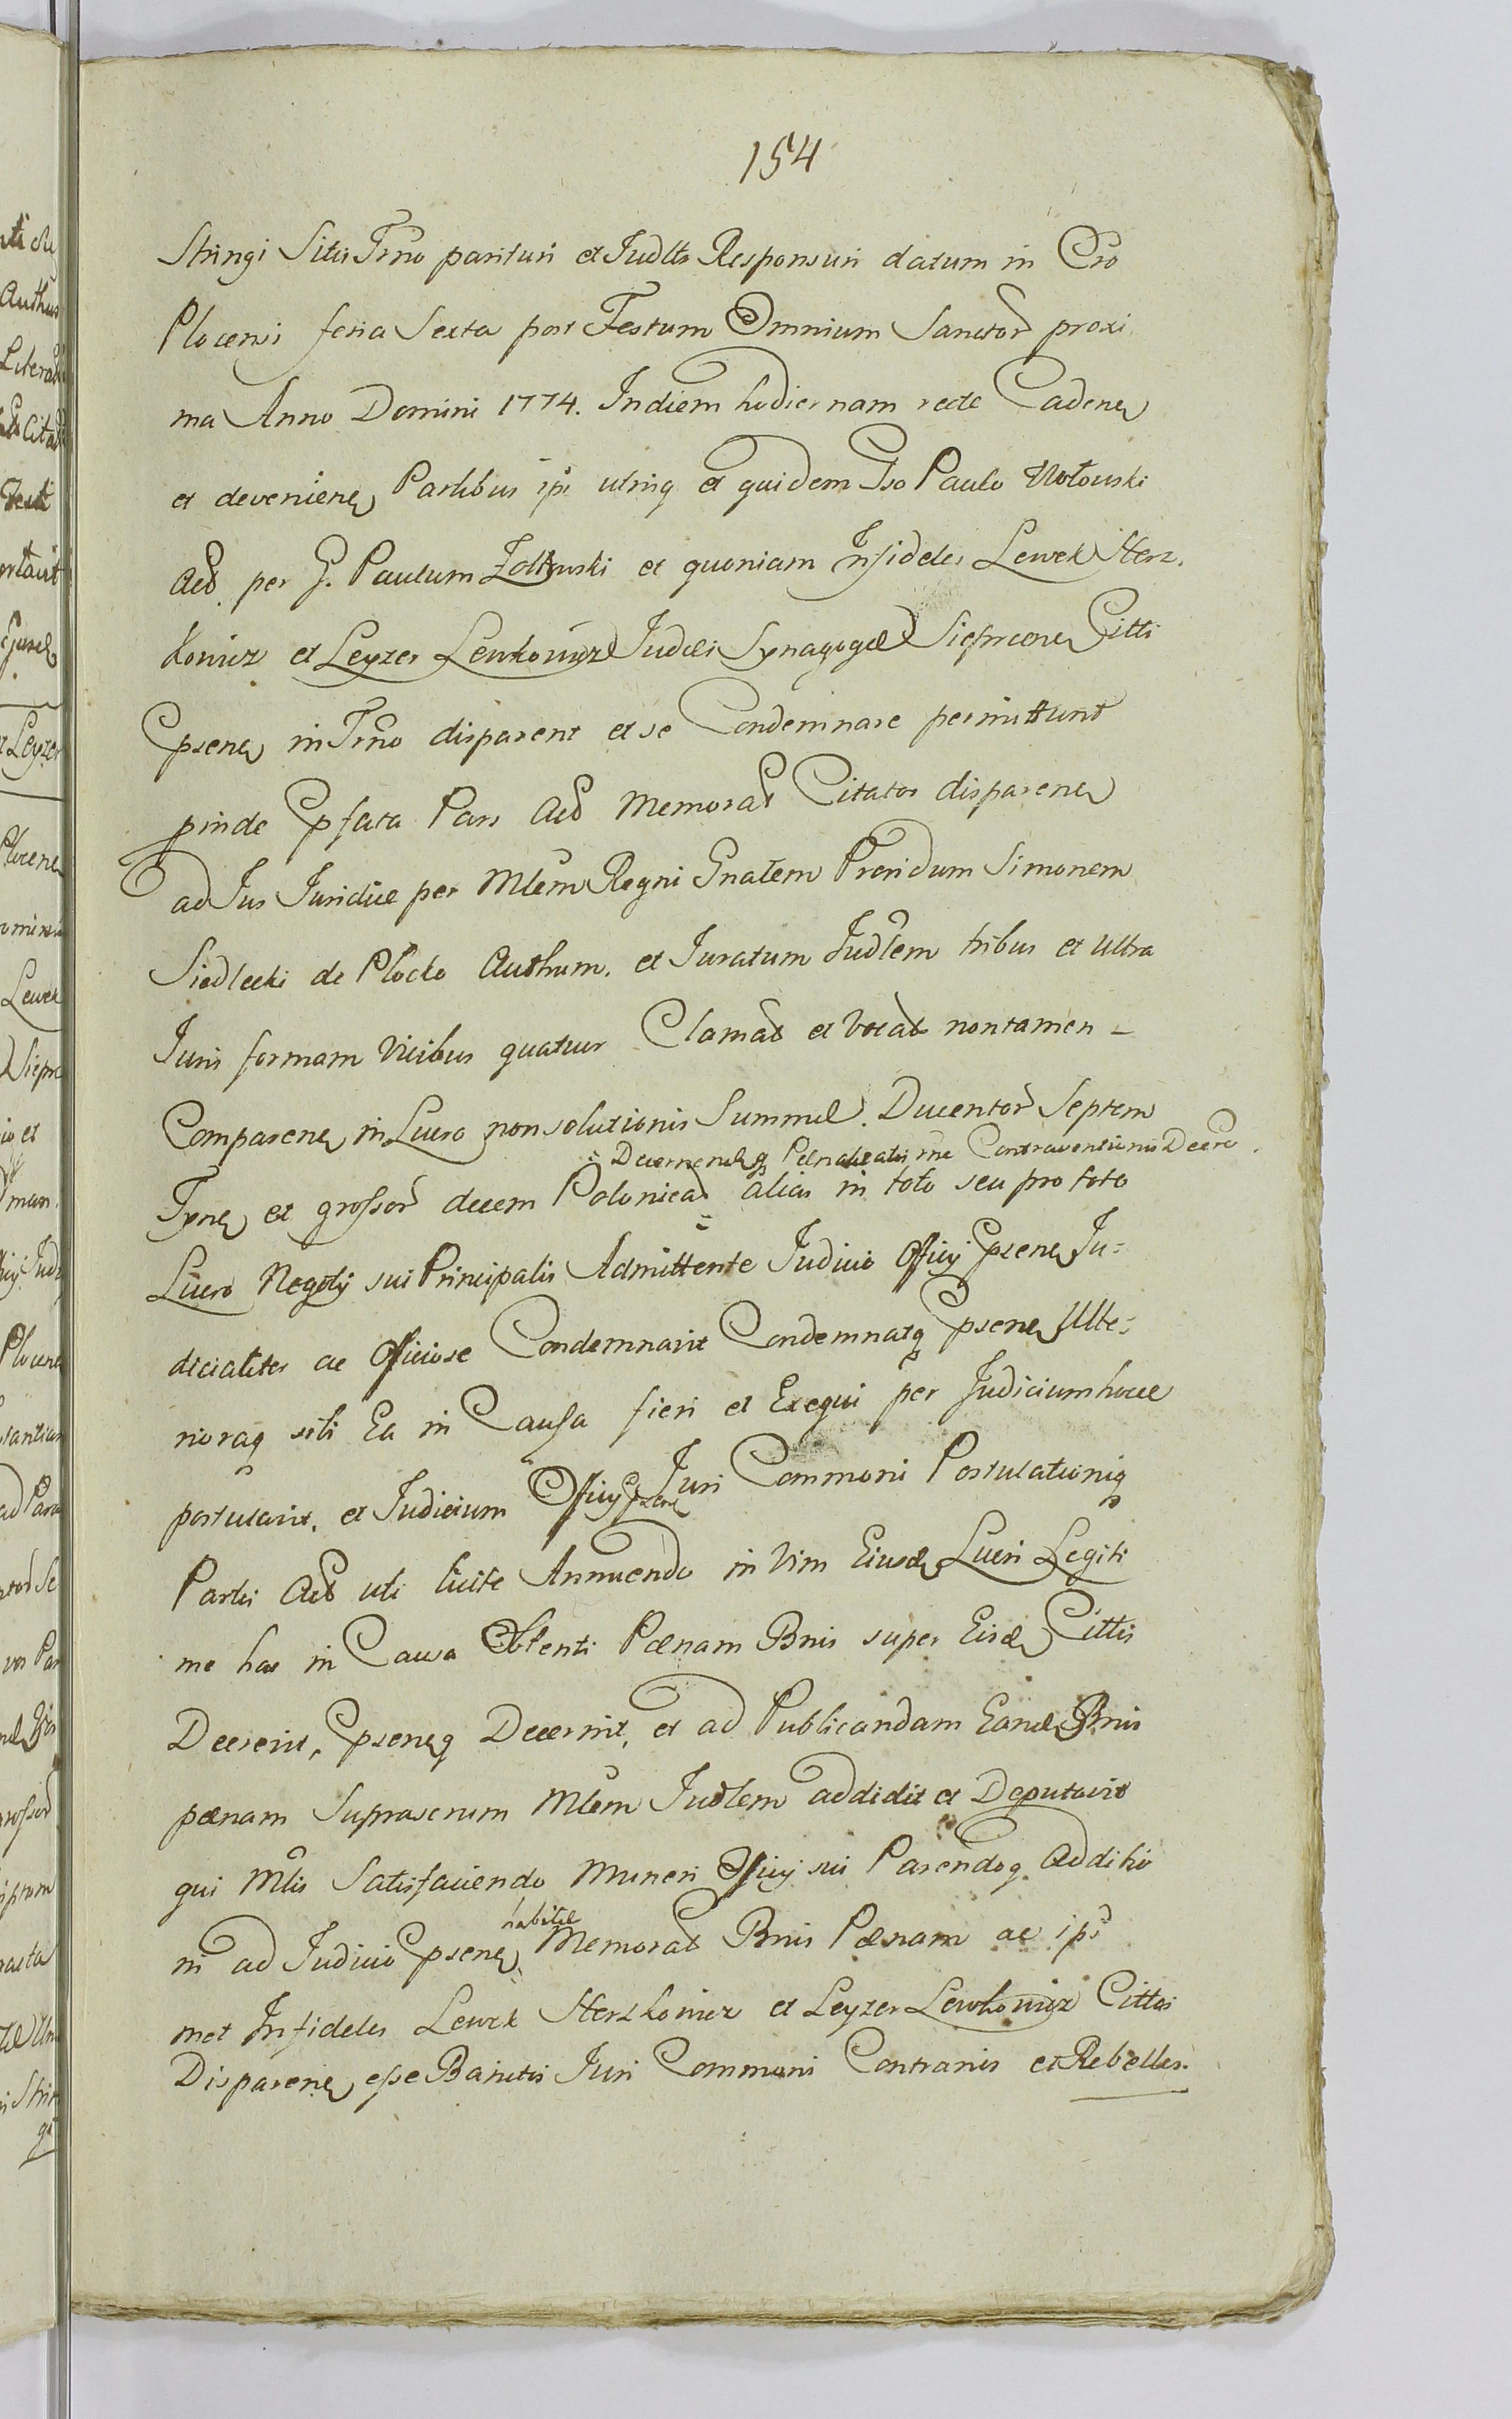 154
Stringi Sitis Trno parituri et Judltr Responsuri datum in Cro
Plocensi feria Sexta post Festum Omnium Sanctor proxi
ma Anno Domini 1774. Indiem hodiernam rede Cadene
et deveniene Partibus ipi utinq et quidem Gso Paulo Wołouski
Act. per G. Paulum Zoltowski et quoniam Infideles Lewek Hersz,
kowicz et Leyzer Lewkowicz Judæi Synagogæ Sieprcene Citti
Epsene in Trno disparent et se Condemnare permittunt
pinde Epfata Pars Act Memorat Citator disparene
ad Jus Juridice per Mlem Regni Gnalem Providum Simonem
Siedlecki de Plocko Authum. et Juratum Judlem tribus et Ultra
Juris formam Vicibus quatuor Clamat et Vocat nontamen -
Comparene in Lucro nonsolutionis Summæ Ducentor Septem
Decernend Pænalitatis Contraventionis Decro
Tyne et grossor decem Polonical alias in toto seu pro toto
Lucro Negotÿ sui Principalis Admittente Judicio Officÿ Epsene Ju=
dicialiter ac Officiose Condemnavit Condemnatq Epsene Ulte=
rioraq sibi Ea in Causa fieri et Exequi per Judicium hocce
postulavit. et Judicium Officÿ Epsene Juri Commoni Postulationiq
Partis Act uti licite Annuendo in Vim Eiusd Lucri Legiti
me hac in Causa Obtenti Pænam Bnis super Eisd Cittis
Decrevit, Epseneq Decernit, et ad Publicandam Eand Bnis
pænam Suprascrium Mlem Judlem addidit et Deputavit
qui Mlis Satisfaciendo Muneri Officÿ sui Parendoq Additio
ni ad Judicio Epsene habitæ Memorat Bnis Pænam ac ips
met Infideles Lewek Herszkowicz et Leyzer Lewkowicz Cittos
Disparene esse Banitos Juri Commoni Contrarios et Rebelles.